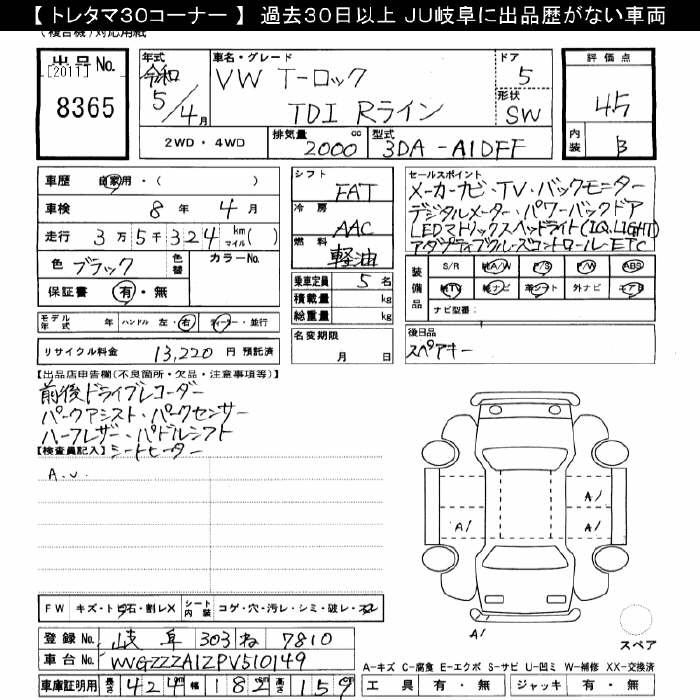 【 トレタマ30コーナー 】 過去30日以上 JU岐阜に出品歴がない車両
出品No.
[2011]
8365
年式
令和
5/4月
車名・グレード
VW T-ロック
TDI Rライン
ドア
5
形状
SW
評価点
4.5
内装
B
2WD・4WD
排気量
2000 cc
型式
3DA-A1DFF
車歴 自家用・( )
車検 8年 4月
走行 3万5千324 km マイル( )
色 ブラック
色替
カラーNo.
保証書 有・無
モデル年式 年 ハンドル 左・右 ディーラー・並行
リサイクル料金 13,220 円 預託済
シフト FAT
冷房 AAC
燃料 軽油
乗車定員 5名
積載量 kg
総重量 kg
名変期限
月 日
セールスポイント
メーカーナビ・TV・バックモニター
デジタルメーター・パワーバックドア
LEDマトリックスヘッドライト(IQ.LIGHT)
アダプティブクルーズコントロール・ETC
装備品
S/R 純A/W P/S P/W ABS
純TV 純ナビ 革シート 外ナビ エアB
ナビ型番:
後日品
スペアキー
【出品店申告欄(不良箇所・欠品・注意事項等)】
前後ドライブレコーダー
パークアシスト・パークセンサー
ハーフレザー・パドルシフト
シートヒーター
【検査員記入】
A.U.
A1
A1
A1
A1
スペア
FW キズ・トビ石・割レX シート内装 コゲ・穴・汚レ・シミ・破レ・スレ
登録No. 岐阜 303 ね 7810
車台No. WVGZZZA1ZPV510149
車庫証明用 長さ 424 幅 182 高さ 159
A-キズ C-腐食 E-エクボ S-サビ U-凹ミ W-補修 XX-交換済
工具 有・無 ジャッキ 有・無